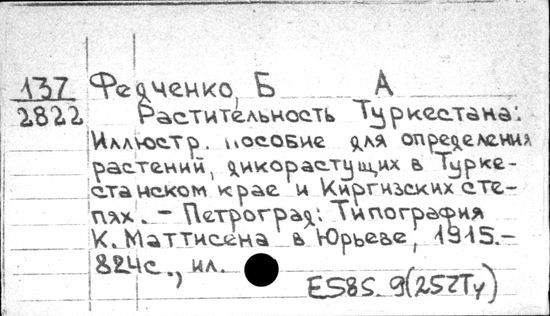 137 Федченко, Б А
2822 Растительность Туркестана:
Иллюстр. пособие для определения
растений, дикорастущих в Турке-
станском крае и Киргизских сте-
пях. – Петроград: Типография
К. Маттисена в Юрьеве, 1915.–
824с., ил.
Е585.9(252Ту)